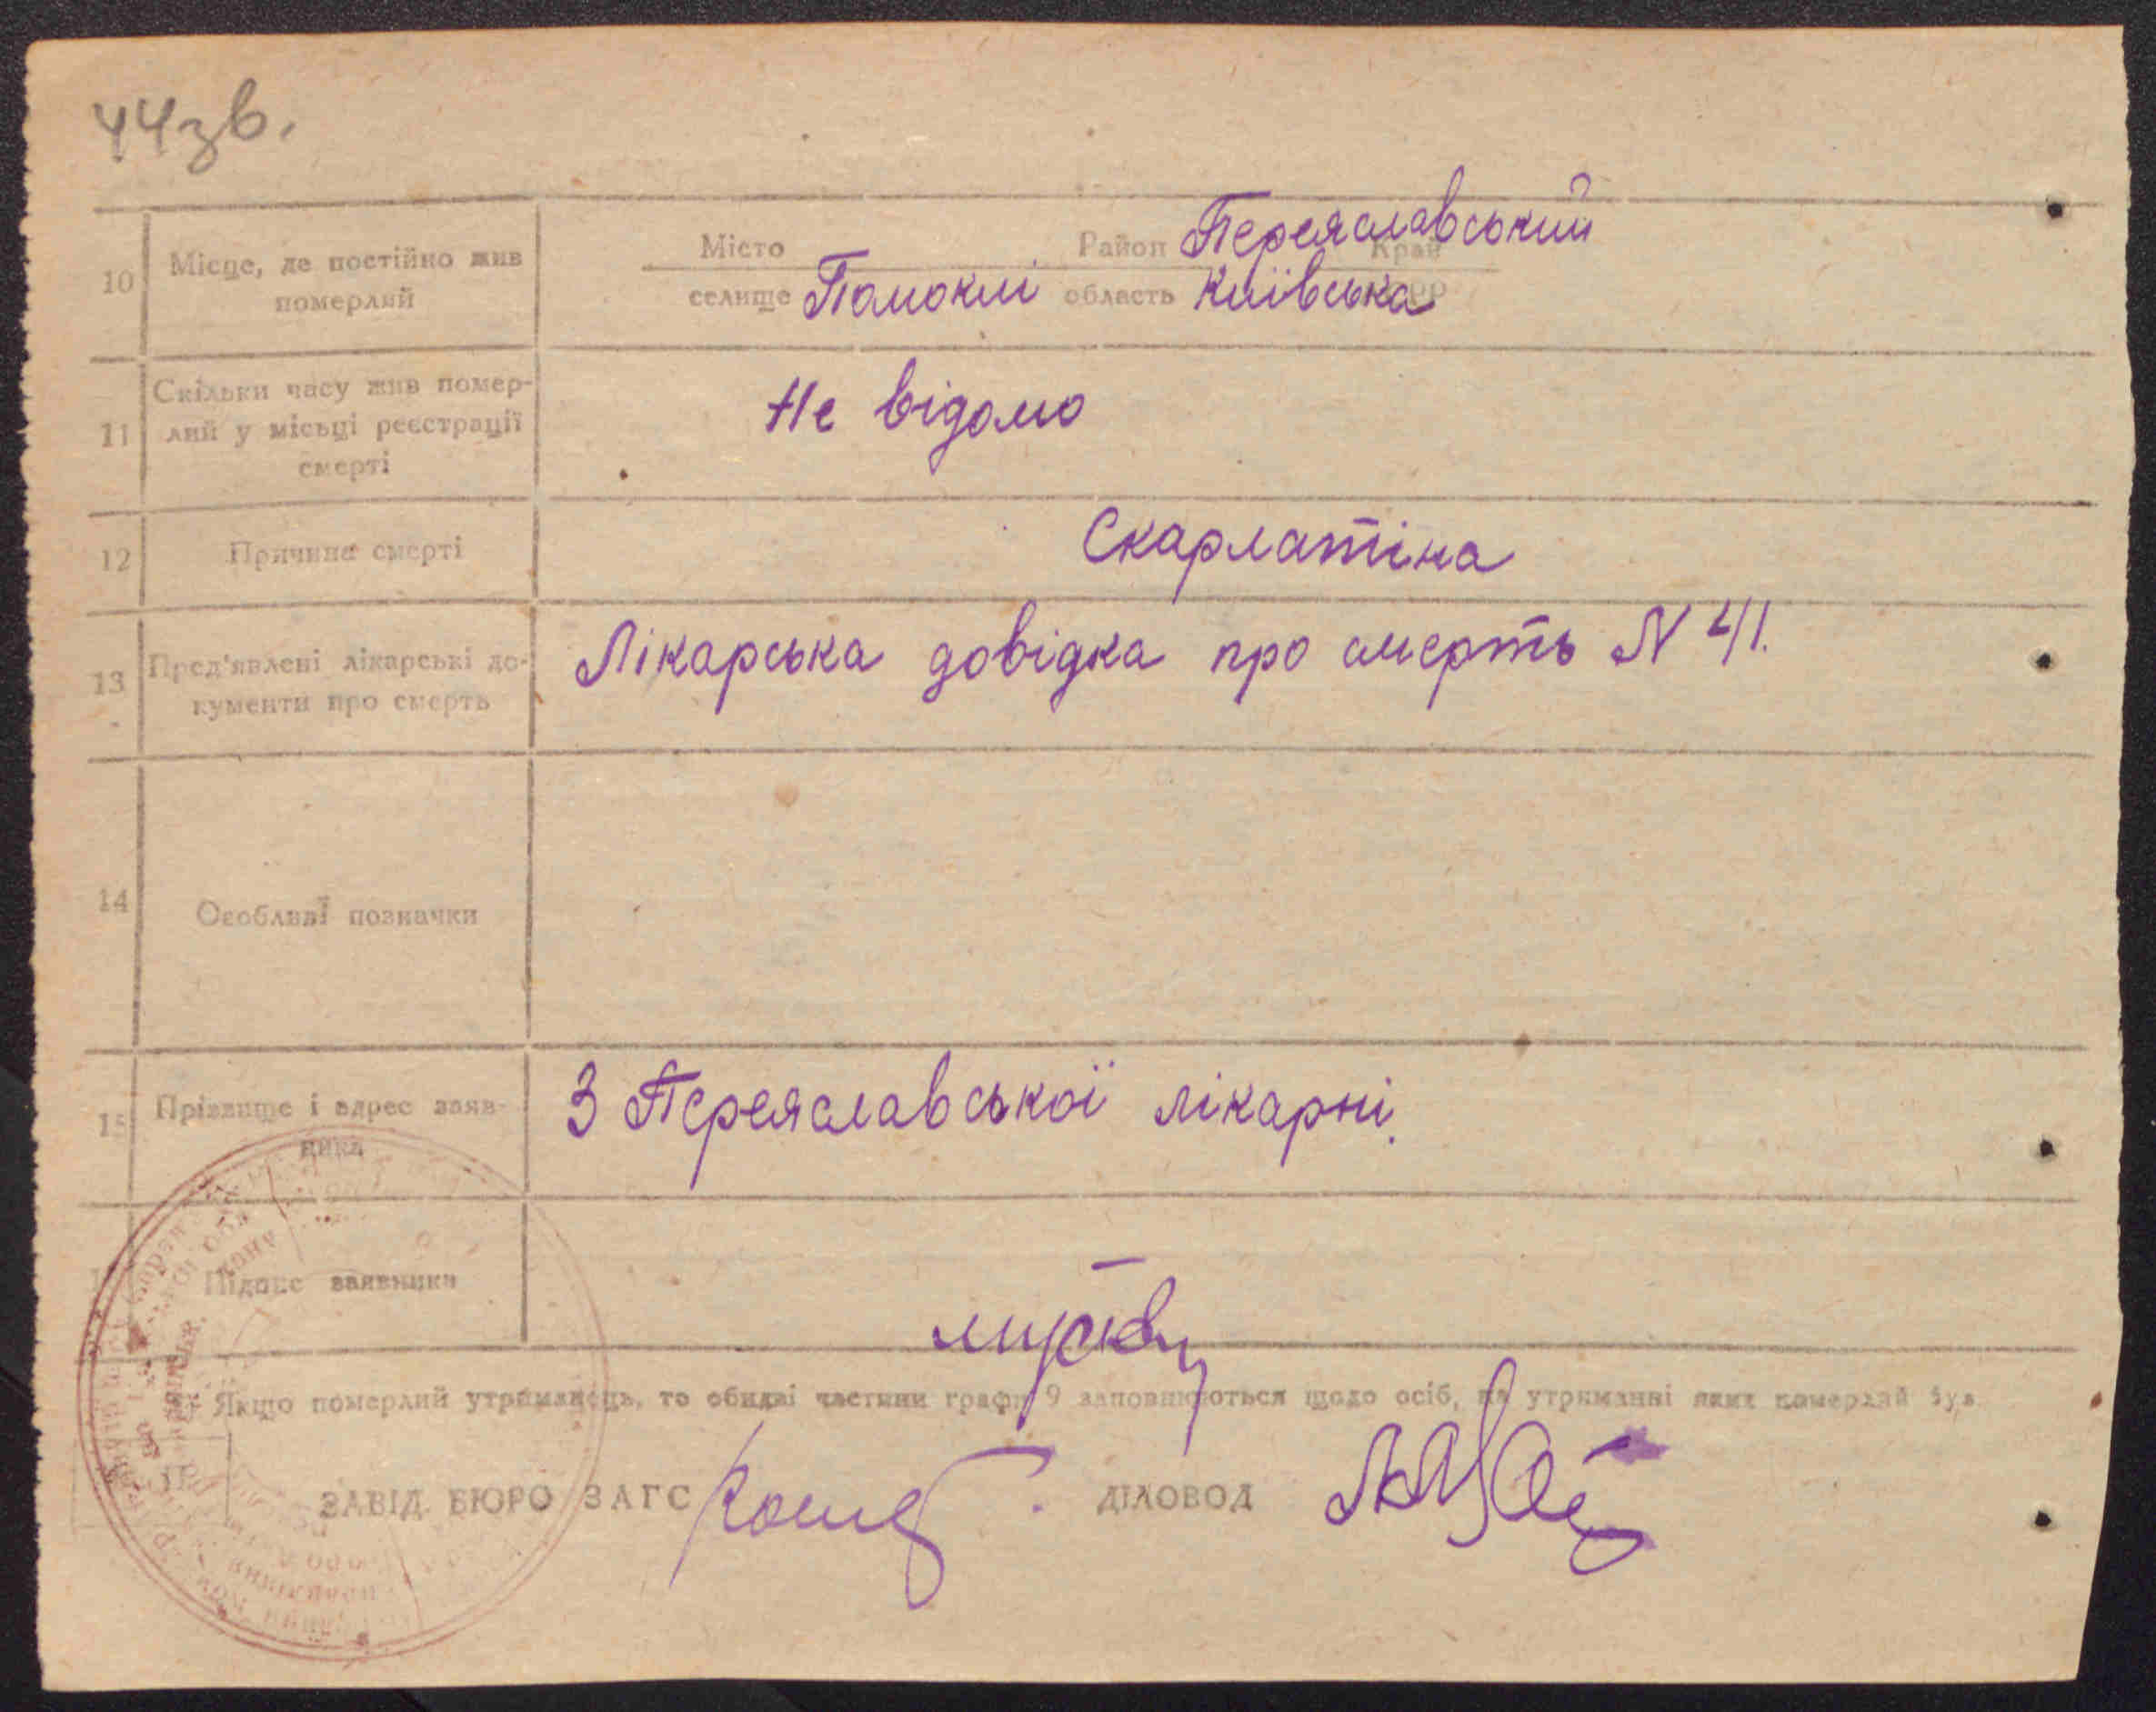 44зв.
10 Місце, де постійно жив померлий
Місто Район Переяславський Край
селище Помоклі область Київська
Скільки часу жив помер-
11 лий у місьці реєстрації Не відомо
смерті
12 Причина смерті Скарлатіна
13 Пред'явлені лікарські до- Лікарська довідка про смерть N 41.
кументи про смерть
14 Особливі позначки
15 Прізвище і адрес заяв- З Переяславської лікарні.
ника
Підпис заявника
Якщо померлий утриманець, то обидві частини графи 9 заповнюються щодо осіб, на утриманні яких померлий був
ЗАВІД. БЮРО ЗАГС ДІЛОВОД